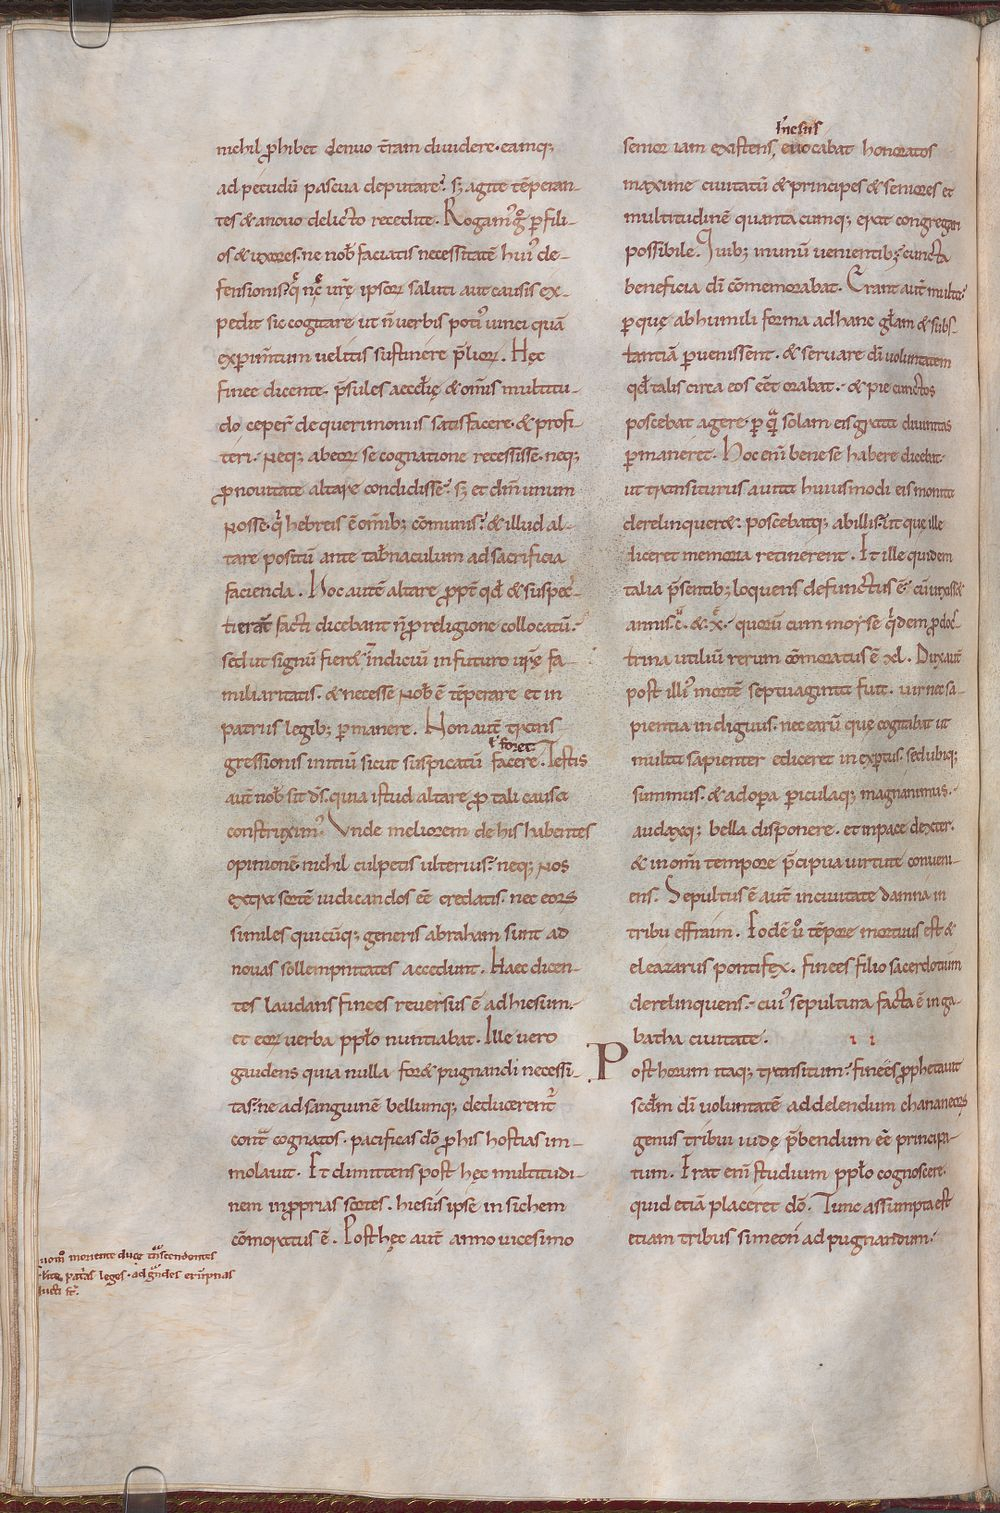 nichil ꝓhibet denuo t̄ram diuidere· eamq;
ad pecudū pascua deputare? s; agite tēperan-
tes & anouo delicto recedite. Rogam᷒ g̊ p̄ fili-
os & uxores. ne nob̄ faciatis necessitatē hui᷒ de-
fensionis. q̊ nc̄ ur̄ę ipsoꝝ saluti aut causis ex-
pedit sic cogitare ut n̄ uerbis poti᷒ uinci quā
experim̄tum uelitis sustinere p̄lioꝝ. Hęc
finee dicente. p̄sules aecclię & om̄is multitu-
do ceper̄ de querimoniis satisfacere. & profi-
teri. neq; ab eoꝝ se cognatione recessisse. neq;
ꝓ nouitate altare condidisse? s; et dm̄ unum
nosse. q̊ hebreis ē om̄ib; cōmunis? & illud al-
tare positū ante tab̄naculum ad sacrificia
facienda. Hoc autē altare ꝓpt̄ qd̄ & suspec-
ti erant facti dicebant n̄ ꝓ religione collocatū?
sed ut signū fier& indiciū in futuro ur̄ę fa-
miliaritatis. & necesse nob̄ ē tēperare et in
patriis legib; p̄manere. Non aut̄ trans-
ł foret
gressionis initiū sicut suspicatū facere. Testis
aut̄ nob̄ sit ds̄. quia istud altare ꝓ tali causa
construxim᷒. Vnde meliorem de his habentes
opinionē nichil culpetis ulterius? neq; nos
extra sortē iudicandos eē credatis. nec eoꝝ
similes quicūq; generis abraham sunt ad
nouas sollempnitates accedunt. Haec dicen-
tes laudans finees reuersus ē ad hiesum.
et eoꝝ uerba ppło nuntiabat. Ille uero
gaudens quia nulla for& pugnandi necessi-
tas? ne ad sanguinē bellumq; deducerent᷒
cont̄ cognatos. pacificas dō ꝓ his hostias im-
molauit. Et dimittens post hęc multitudi-
nem in ꝓprias sortes. hiesus ipse in sichem
cōmoratus ē. Post hęc aut̄ anno uicesimo
moriente duce t̄nscendentes
patrias leges. ad g̊ndes erūpnas
ł hiesus
senior iam existens, euocabat honoratos
maxime ciuitatū & principes & seniores et
multitudinē quantacumq; erat congregari
possibile. Quib; in unū uenientib;? cuncta
beneficia dī cōmemorabat. Erant aut̄ multa?
p̄ quę ab humili forma ad hanc głam & subs-
tantiā peruenissent. & seruare dī uoluntatem
qd̄ talis circa eos eēt orabat. & pie cunctos
poscebat agere. p̄ q̄ solam eis grata diuinitas
p̄maneret. Hoc enī bene se habere dicebat.
ut transiturus a uita huiusmodi eis monita
derelinqueret. poscebatq; ab illis? ut quę ille
diceret memoria retinerent. Et ille quidem
talia p̄sentib; loquens defunctus ē? cū uixiss&
annis. c̄. &. x̄. quorū cum moyse q̊dem ꝓ doc-
trina utiliū rerum cōmoratus ē xl. Dux aut̄
post illi᷒ mortē septuaginta fuit. uir nec sa-
pientia indiguus. nec earū que cogitabat ut
multa sapienter ediceret inexptus. sed ubiq;
summus. & ad opa periculaq; magnanimus.
audaxq; bella disponere. et in pace dexter.
& in om̄i tempore p̄cipua uirtute conueni-
ens. Sepultus ē aut̄ in ciuitate damna in
tribu effraim. Eodē u̇ tēpore mortuus est &
eleazarus pontifex. finees filio sacerdotium
derelinquens. cui᷒ sepultura facta ē in ga-
batha ciuitate. ıı
Post horum itaq; transitum? finees ꝓphetauit
scd̄m dī uoluntatē ad delendum chananeoꝝ
genus tribui iudę p̄bendum eē principa-
tum. Erat enī studium ppło cognoscere
quid etiā placeret dō. Tunc assumpta est
etiam tribus simeon ad pugnandum.